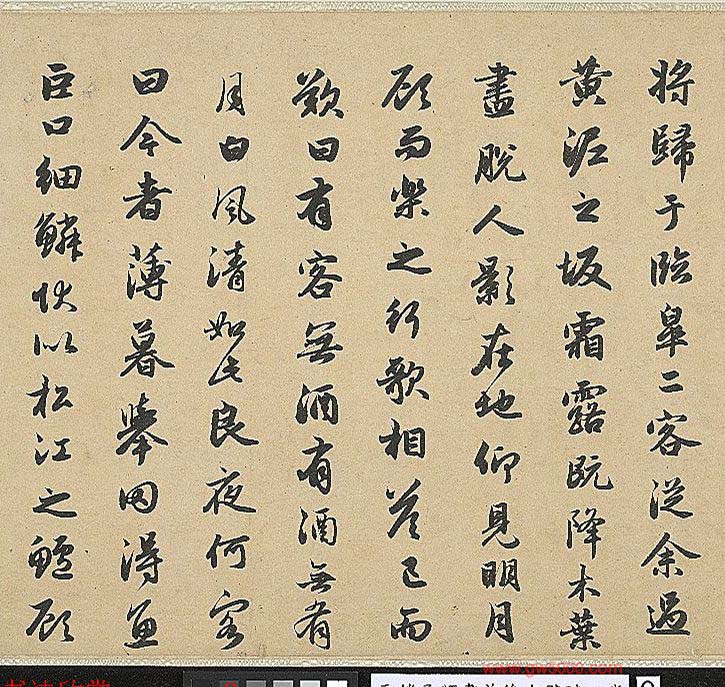 將歸于臨皋二客從余過
黄泥之坂霜露既降木葉
盡脫人影在地仰見明月
顧而樂之行歌相答已而
歎曰有客無酒有酒無肴
月白風清如此良夜何客
曰今者薄暮舉网得魚
巨口細鱗狀似松江之鱸顧